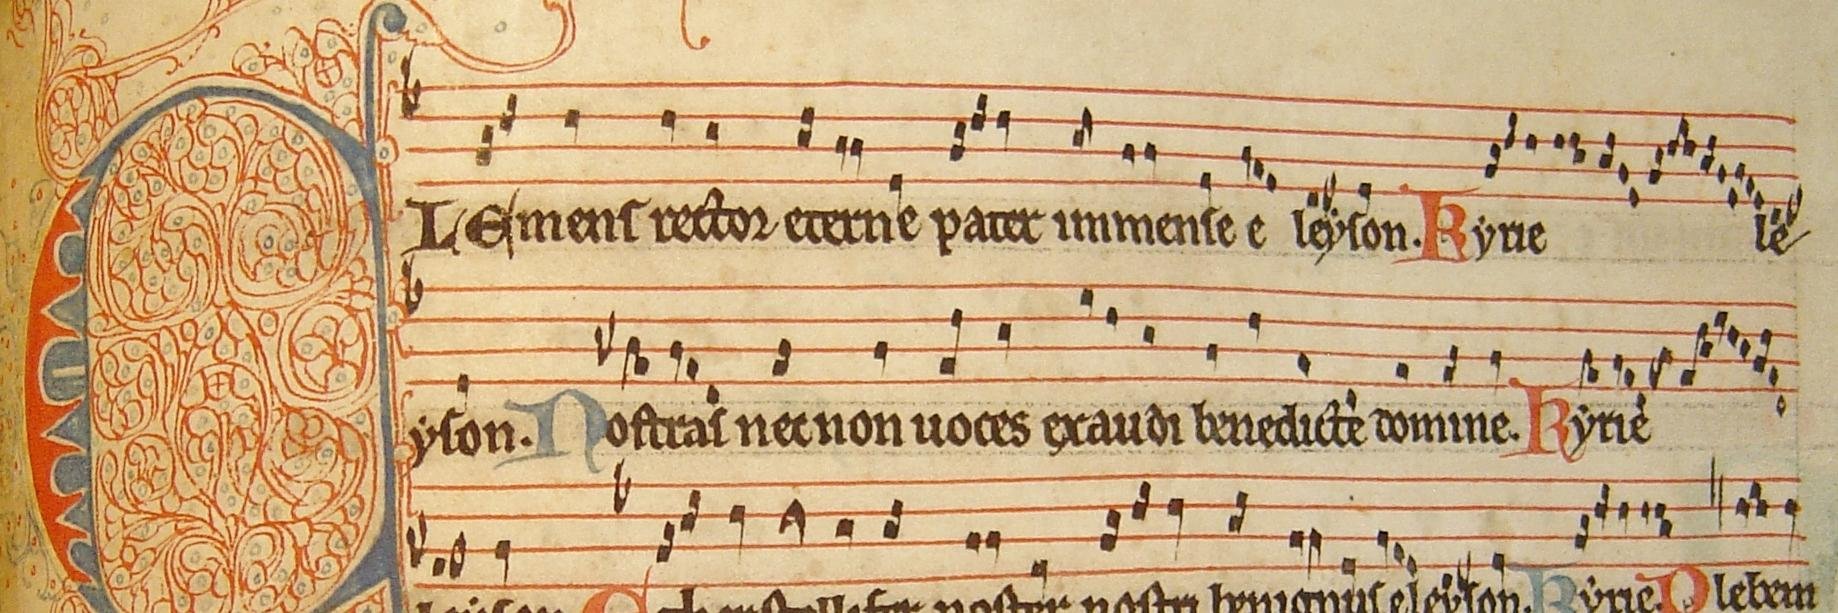 CLEmens rector eterne pater immense e leyson. Kyrie le
yson. Nostras nec non uoces exaudi benedicte domine. Kyrie
leyson. noster nostri benignus eleyson. Kyrie Plebem